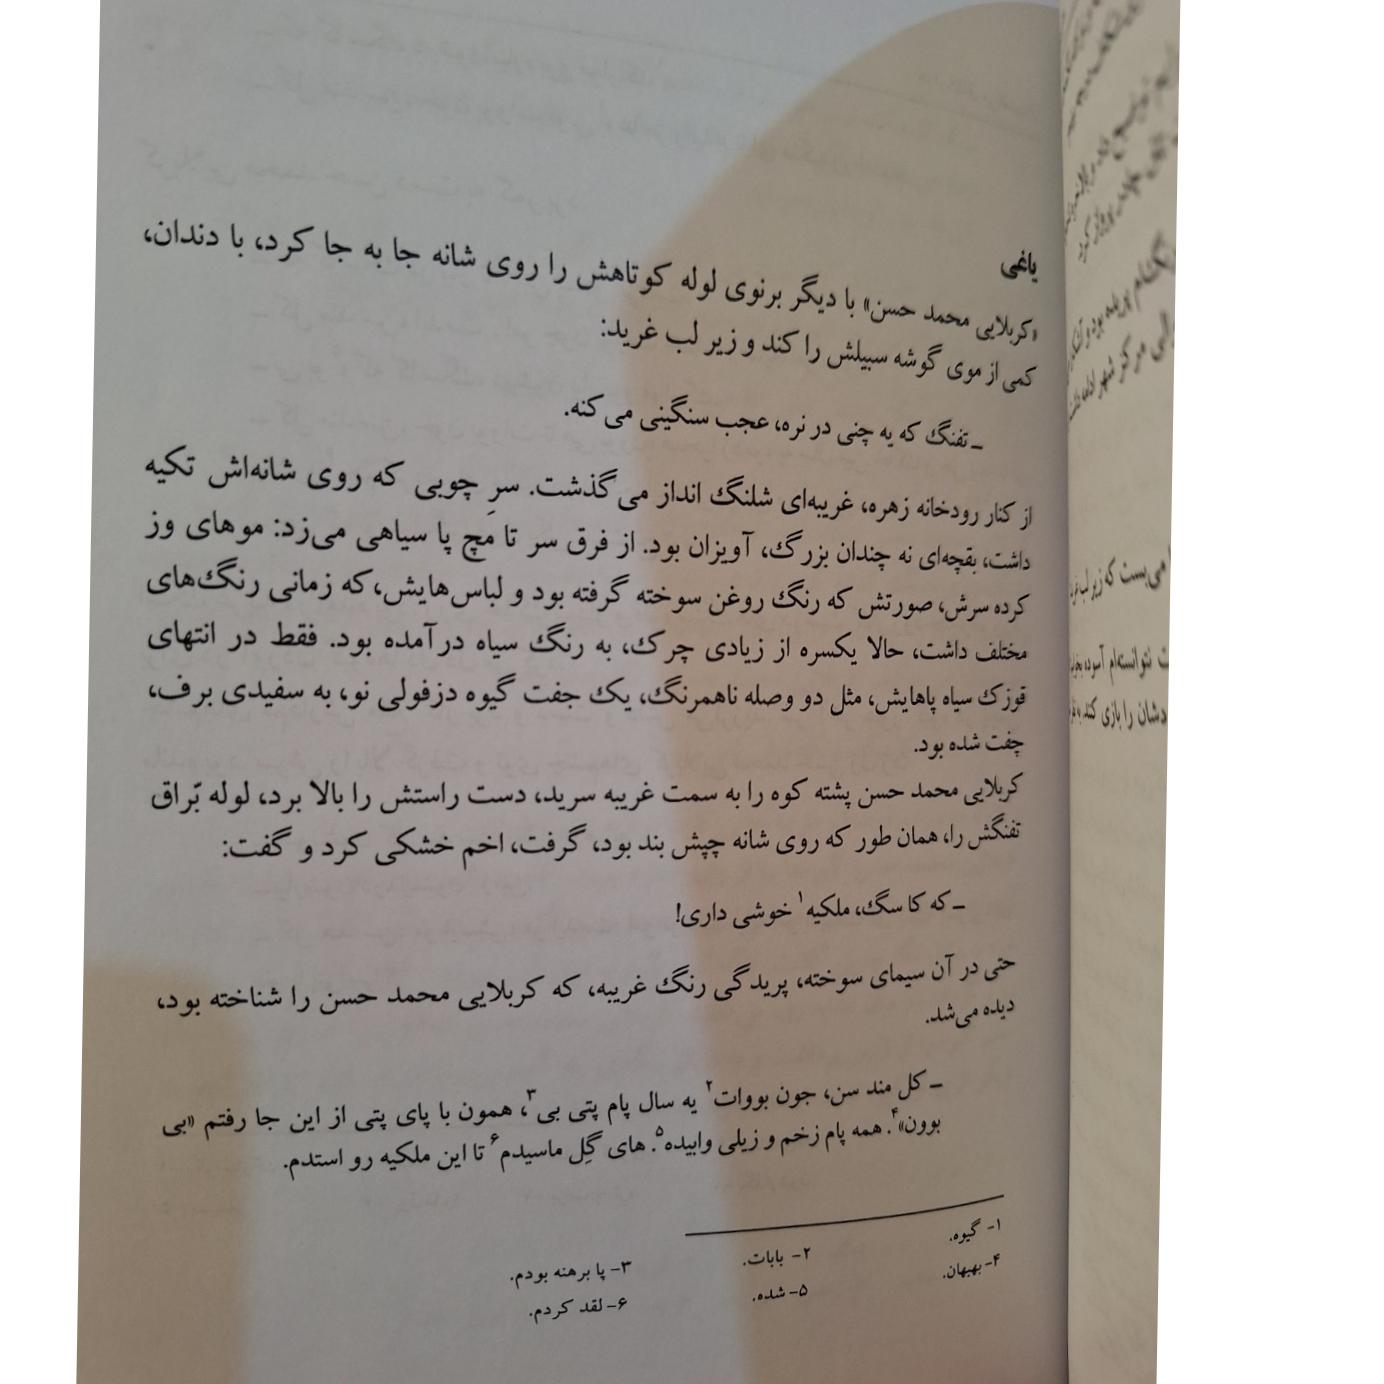 یاغی
«کربلایی محمد حسن» با دیگر برنوی لوله کوتاهش را روی شانه جا به جا کرد، با دندان،
کمی از موی گوشه سبیلش را کند و زیر لب غرید:
ـ تفنگ که یه چنی در نره، عجب سنگینی می‌کنه.
از کنار رودخانه زهره، غریبه‌ای شلنگ انداز می‌گذشت. سرِ چوبی که روی شانه‌اش تکیه
داشت، بقچه‌ای نه چندان بزرگ، آویزان بود. از فرق سر تا مچ پا سیاهی می‌زد: موهای وز
کرده سرش، صورتش که رنگ روغن سوخته گرفته بود و لباس‌هایش، که زمانی رنگ‌های
مختلف داشت، حالا یکسره از زیادی چرک، به رنگ سیاه درآمده بود. فقط در انتهای
قوزک سیاه پاهایش، مثل دو وصله ناهمرنگ، یک جفت گیوه دزفولی نو، به سفیدی برف،
چفت شده بود.
کربلایی محمد حسن پشته کوه را به سمت غریبه سرید، دست راستش را بالا برد، لوله بّراق
تفنگش را، همان طور که روی شانه چپش بند بود، گرفت، اخم خشکی کرد و گفت:
ـ که کا سگ، ملکیه۱ خوشی داری!
حتی در آن سیمای سوخته، پریدگی رنگ غریبه، که کربلایی محمد حسن را شناخته بود،
دیده می‌شد.
ـ کل مند سن، جون بووات۲ یه سال پام پتی بی۳، همون با پای پتی از این جا رفتم «بی
بوون»۴. همه پام زخم و زیلی وابیده۵. های گِل ماسیدم۶ تا این ملکیه رو استدم.
۱- گیوه. ۲- بابات. ۳- پا برهنه بودم.
۴- بهبهان. ۵- شده. ۶- لقد کردم.